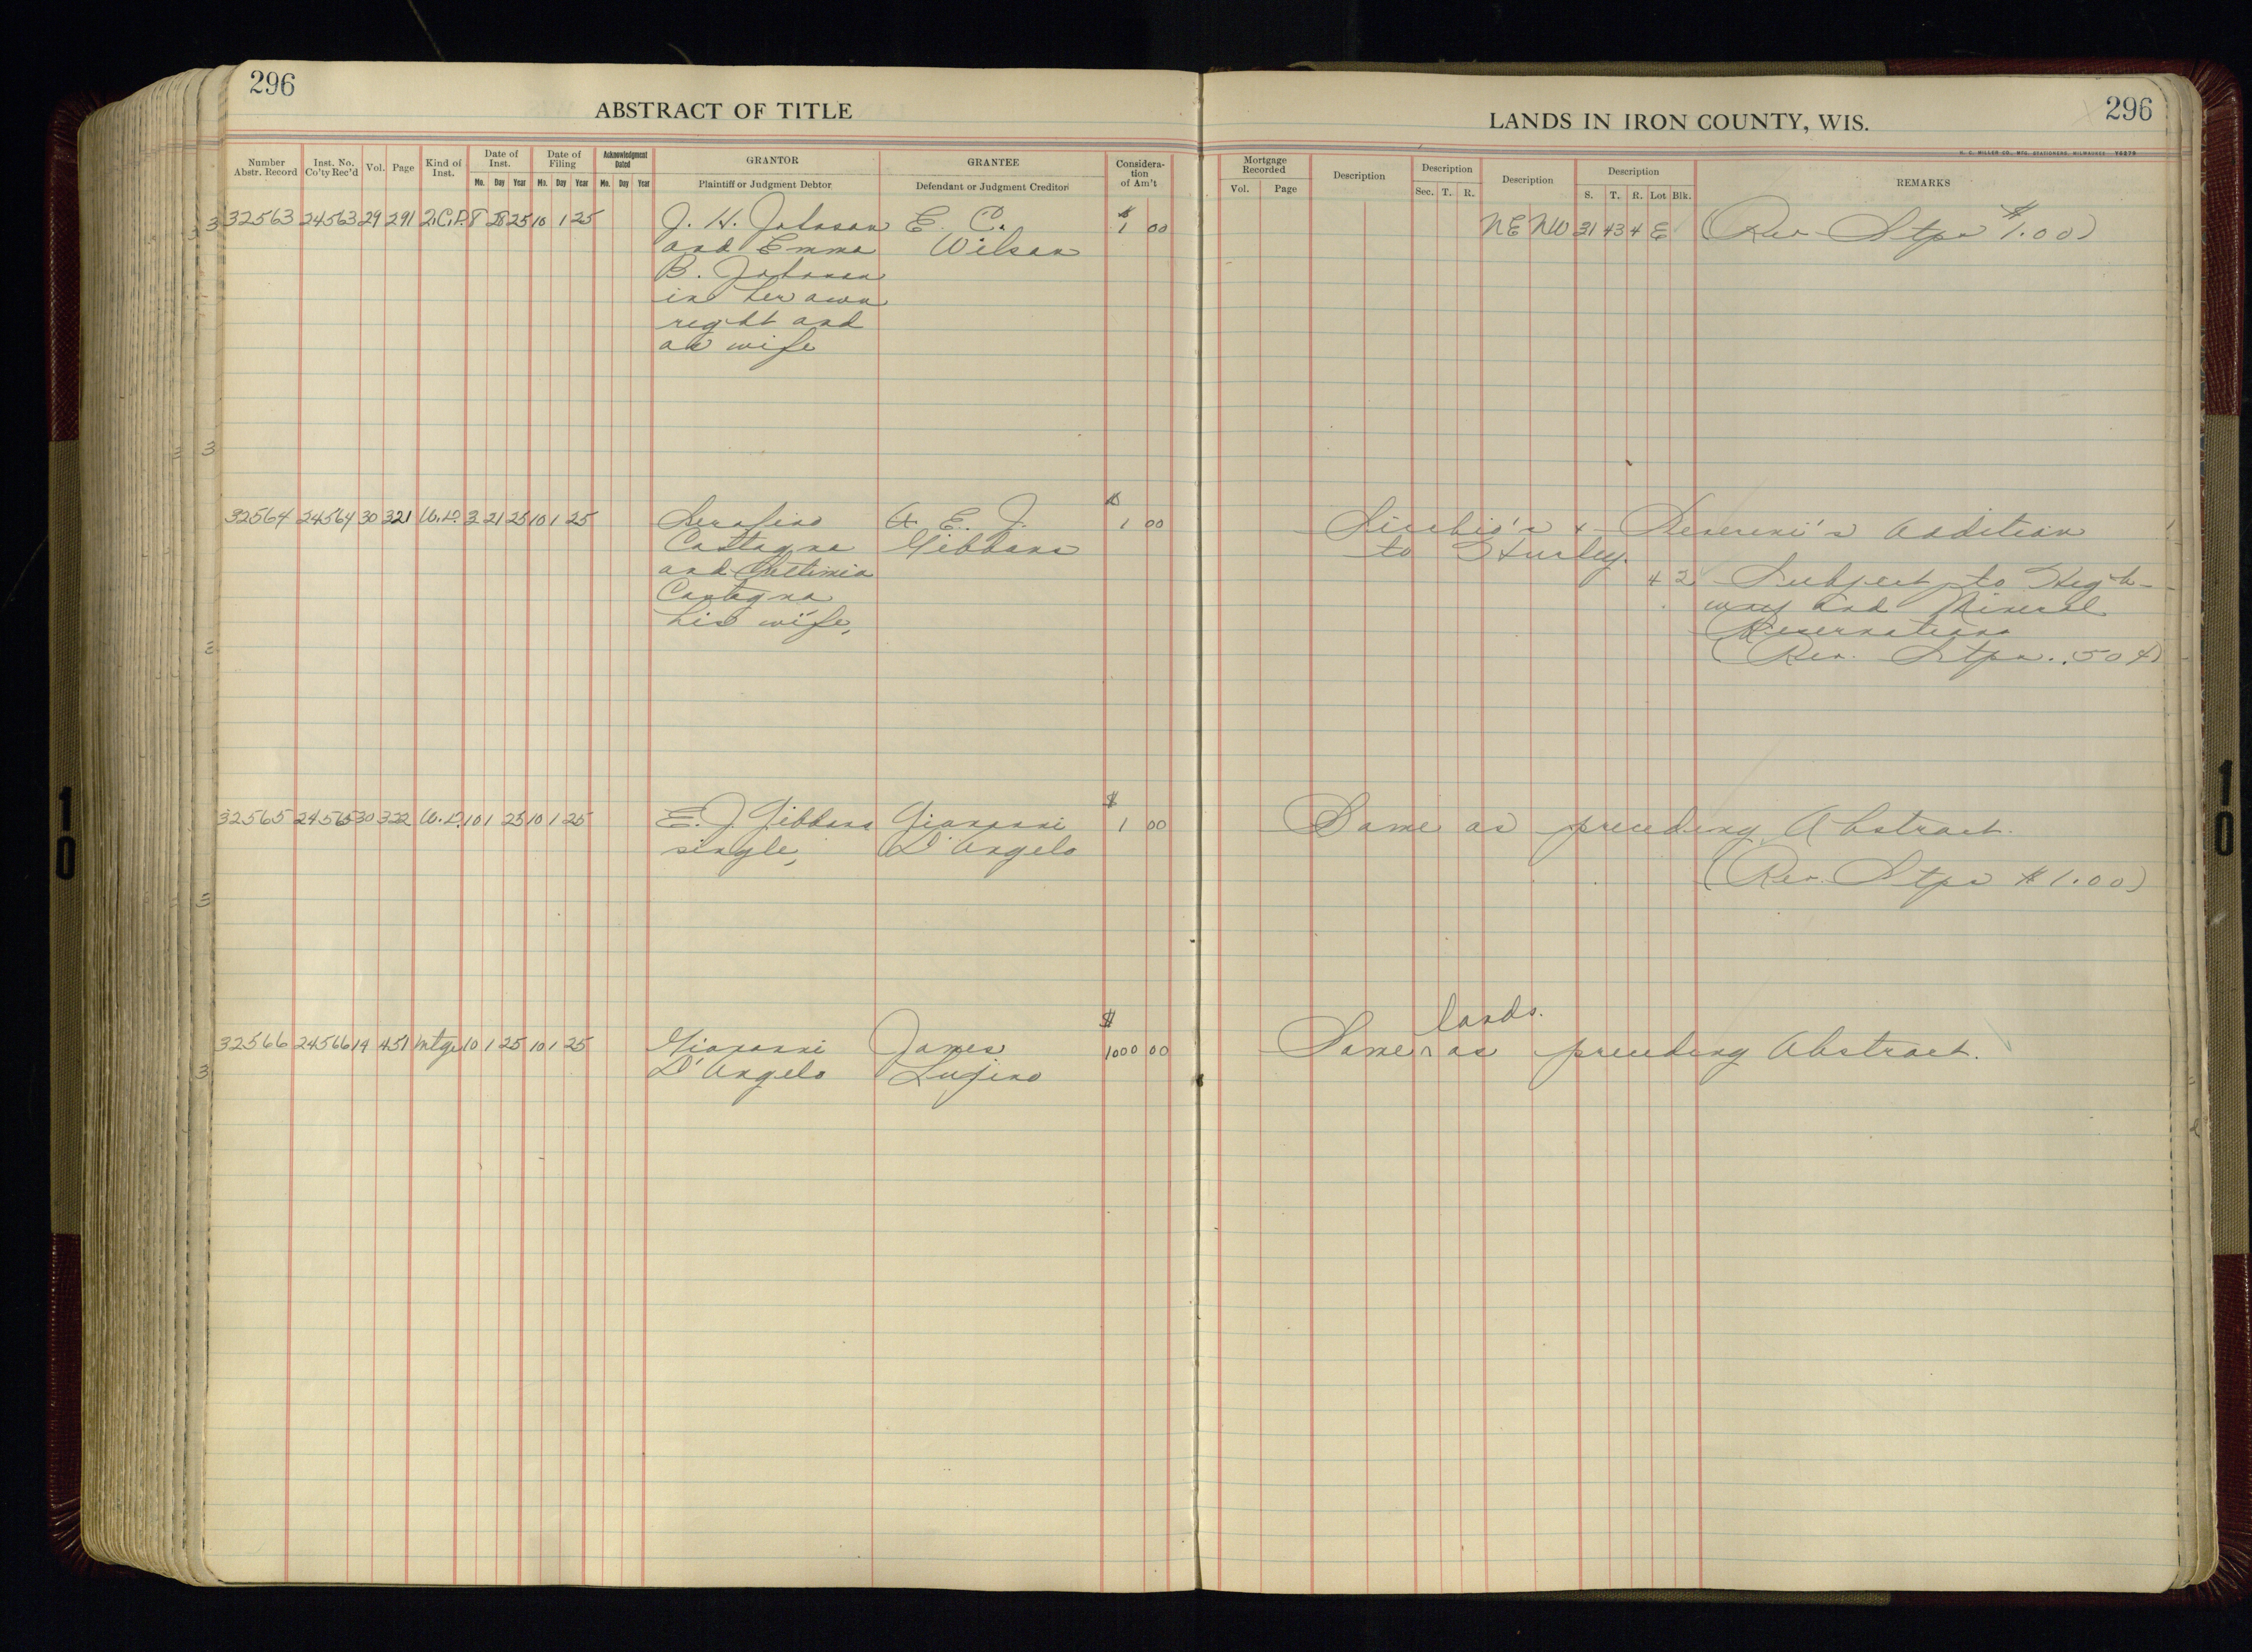 296
ABSTRACT OF TITLE
Number Abstr. Record
Inst. No. Co'ty Rec'd
Vol.
Page
Kind of Inst.
Date of Inst.
Mo. Day Year
Date of Filing
Mo. Day Year
Acknowledgment Dated
Mo. Day Year
GRANTOR
Plaintiff or Judgment Debtor
GRANTEE
Defendant or Judgment Creditor
Considera-tion of Am't
32563 24563 29 291 Q.C.D. 8 28 25 10 1 25 J. H. Johnson E. C. $ 1 00
and Emma Wilson
B. Johnson
in her own
right and
as wife
32564 24564 30 321 W.D. 3 21 25 10 1 25 Serafino E. J. $ 1 00
Castagna Gibbons
and
Castagna
his wife,
32565 24565 30 322 W.D. 10 1 25 10 1 25 E. J. Gibbons Giovanni $ 1 00
single, D'Angelo
32566 24566 14 451 Mtge 10 1 25 10 1 25 Giovanni James $ 1000 00
D'Angelo Lufino
LANDS IN IRON COUNTY, WIS.
296
H. C. MILLER CO., MFG. STATIONERS, MILWAUKEE Y5270
Mortgage Recorded
Vol. Page
Description
Description
Sec. T. R.
Description
Description
S. T. R. Lot Blk.
REMARKS
NE NW 31 43 4 E (Rev Stps $1.00)
Addition
to Hurley.
4 2 Subject to High-
way and Mineral
Reservations
(Rev. Stps. .50¢)
Same as preceding Abstract.
(Rev. Stps $1.00)
lands.
Same as preceding Abstract.